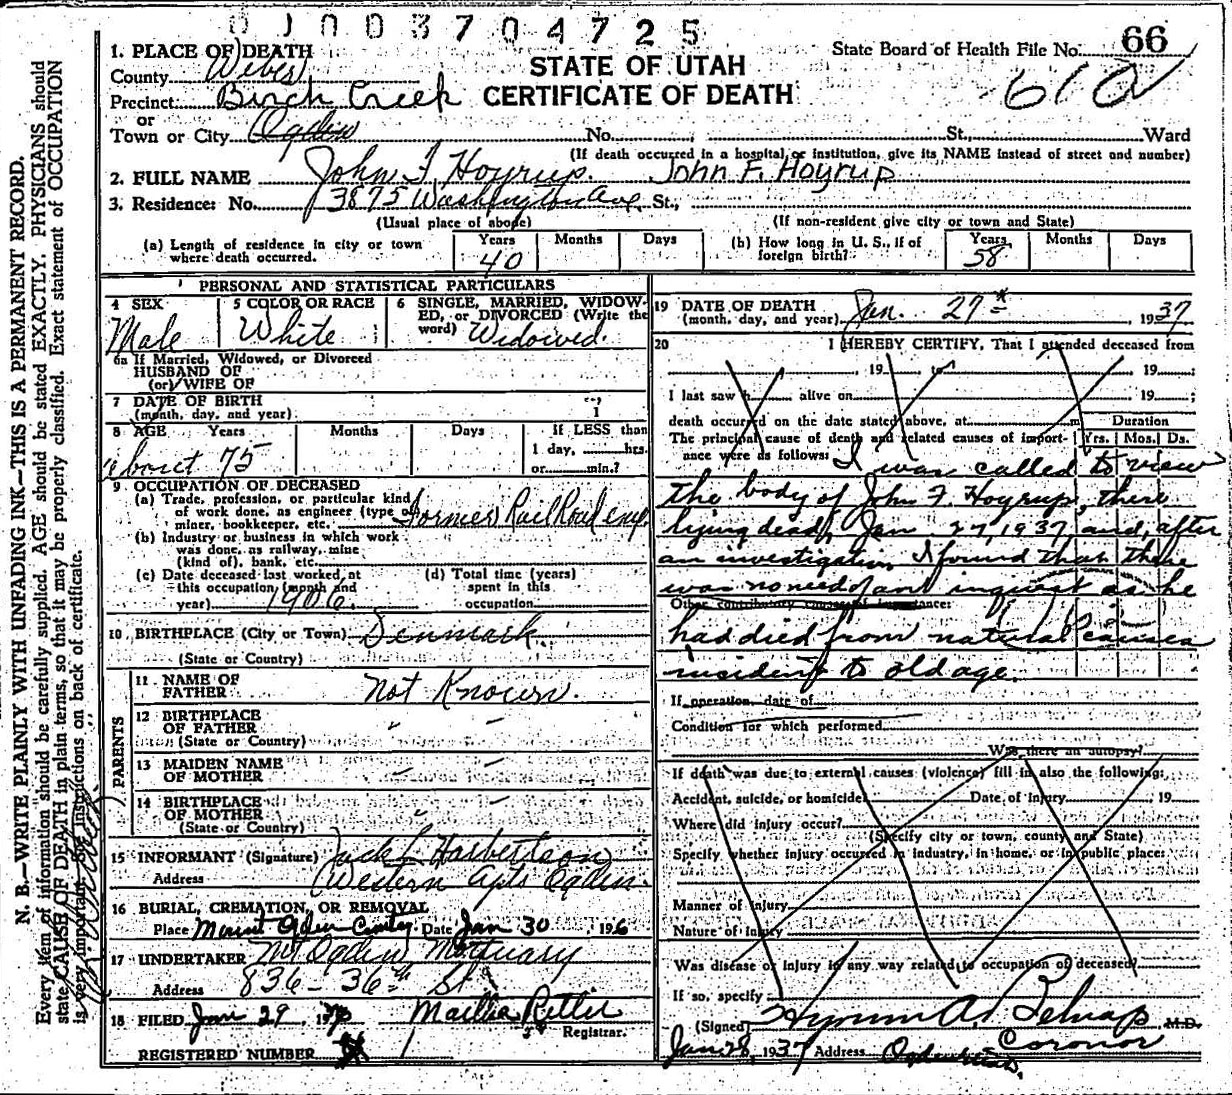 0 1 0 0 3 7 0 4 7 2 5
State Board of Health File No. 66
1. PLACE OF DEATH
STATE OF UTAH
CERTIFICATE OF DEATH
61a
County Weber
Precinct Birch Creek
or
Town or City Ogden No. St. Ward
(If death occurred in a hospital or institution, give its NAME instead of street and number)
2. FULL NAME John F. Hoyrup. John F. Hoyrup
3. Residence: No. 3875 Washington Ave. St.,
(Usual place of abode) (If non-resident give city or town and State)
(a) Length of residence in city or town where death occurred. Years 40 Months Days
(b) How long in U. S., if of foreign birth? Years 58 Months Days
PERSONAL AND STATISTICAL PARTICULARS
4 SEX Male
5 COLOR OR RACE White
6 SINGLE, MARRIED, WIDOWED, or DIVORCED (Write the word) Widowed.
6a If Married, Widowed, or Divorced
HUSBAND OF
(or) WIFE OF
7 DATE OF BIRTH
(month, day, and year) 1
8 AGE Years Months Days If LESS than
about 75 1 day, hrs.
or min.?
9 OCCUPATION OF DECEASED
(a) Trade, profession, or particular kind
of work done, as engineer (type of
miner, bookkeeper, etc. Former RailRoad emp.
(b) Industry or business in which work
was done, as railway, mine
(kind of), bank, etc.
(c) Date deceased last worked at
this occupation (month and
year) 1906.
(d) Total time (years)
spent in this
occupation
10 BIRTHPLACE (City or Town) Denmark.
(State or Country)
PARENTS
11 NAME OF
FATHER Not Known.
12 BIRTHPLACE
OF FATHER
(State or Country)
13 MAIDEN NAME
OF MOTHER
14 BIRTHPLACE
OF MOTHER
(State or Country)
15 INFORMANT (Signature) Jack L Harbertson
Address Western Apts Ogden.
16 BURIAL, CREMATION, OR REMOVAL
Place Mount Ogden Date Jan 30, 19
17 UNDERTAKER Mt Ogden Mortuary
Address 836 - 36th St
18 FILED Jan 29 19
Registrar.
REGISTERED NUMBER 1
19 DATE OF DEATH
(month, day, and year) Jan. 27th 1937
20 I HEREBY CERTIFY, That I attended deceased from
, 19 to 19 ;
I last saw h alive on 19 ;
death occurred on the date stated above, at m Duration
The principal cause of death and related causes of import- Yrs. Mos. Ds.
ance were as follows: I was called to view
the body of John F. Hoyrup, there
lying dead, Jan 27, 1937, and, after
an investigation I found that there
was no need of an inquest as he
Other contributory causes of importance:
had died from natural causes
incident to old age.
If operation, date of
Condition for which performed
Was there an autopsy?
If death was due to external causes (violence) fill in also the following:
Accident, suicide, or homicide Date of injury 19
Where did injury occur?
(Specify city or town, county and State)
Specify whether injury occurred in industry, in home, or in public place:
Manner of Injury
Nature of Injury
Was disease or injury in any way related to occupation of deceased?
If so, specify
(Signed) Hyrum A. Belnap M.D.
Coronor
Jan 28, 1937 Address Ogden Utah.
N. B.—WRITE PLAINLY WITH UNFADING INK—THIS IS A PERMANENT RECORD.
Every item of information should be carefully supplied. AGE should be stated EXACTLY. PHYSICIANS should
state CAUSE OF DEATH in plain terms, so that it may be properly classified. Exact statement of OCCUPATION
is very important. See instructions on back of certificate.